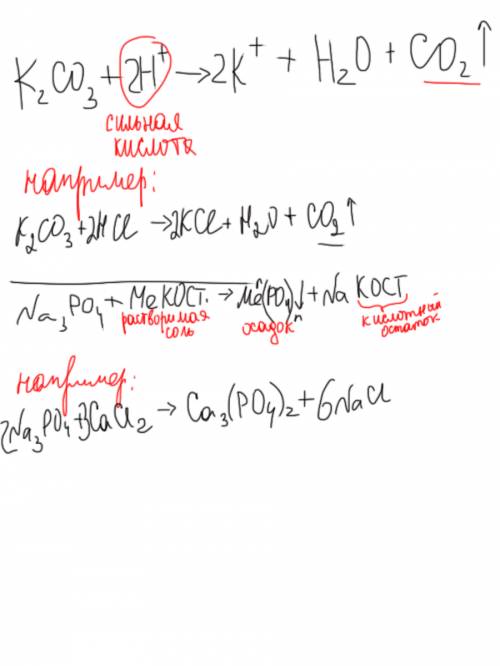 K₂CO₃ + 2H⁺ → 2K⁺ + H₂O + CO₂↑
сильная
кислота
например:
K₂CO₃ + 2HCl → 2KCl + H₂O + CO₂↑
Na₃PO₄ + MeКОСТ. → Me(PO₄)↓ + Na КОСТ
растворимая соль осадок кислотный остаток
например:
2Na₃PO₄ + 3CaCl₂ → Ca₃(PO₄)₂ + 6NaCl